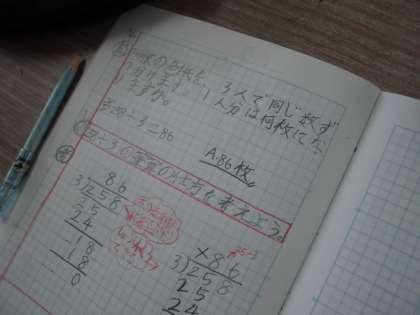 枚の色紙を 3人で同じ数ず
つ分けます。1人分は何枚にな
りますか。
258÷3=86
A.86枚
258÷3の筆算の仕方を考えよう。
86
3)258
25
24
18
18
0
×86
3)258
25
24